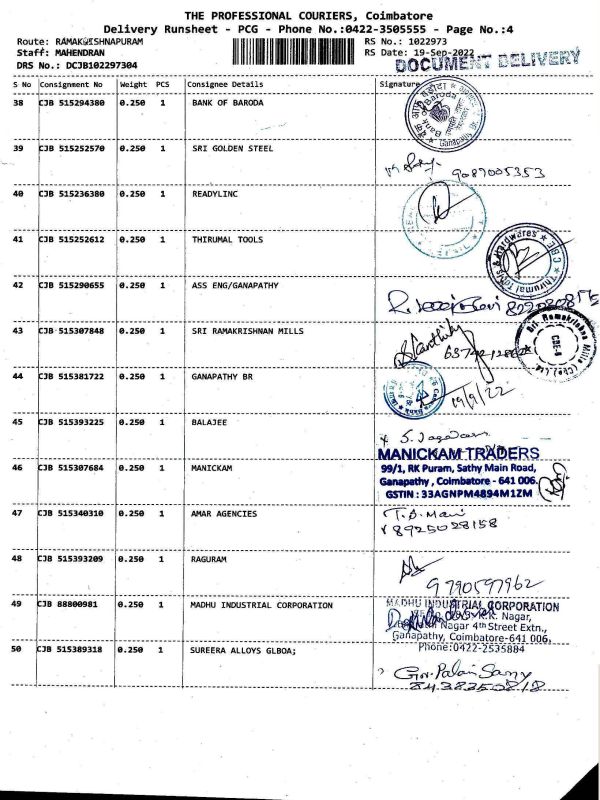 THE PROFESSIONAL COURIERS, Coimbatore
Delivery Runsheet - PCG - Phone No.:0422-3505555 - Page No.:4
Route: RAMAKRISHNAPURAM
RS No.: 1022973
Staff: MAHENDRAN
RS Date: 19-Sep-2022
DRS No.: DCJB102297304
DOCUMENT DELIVERY
S No Consignment No Weight PCS Consignee Details Signature
38 CJB 515294380 0.250 1 BANK OF BARODA
Bank of Baroda
39 CJB 515252570 0.250 1 SRI GOLDEN STEEL
9087005353
40 CJB 515236380 0.250 1 READYLINC
41 CJB 515252612 0.250 1 THIRUMAL TOOLS
Thirumal Tools & Hardwares ★ CBE ★
42 CJB 515290655 0.250 1 ASS ENG/GANAPATHY
43 CJB 515307848 0.250 1 SRI RAMAKRISHNAN MILLS
Sri Ramakrishna Mills (Cbe) Ltd.
CBE-6
44 CJB 515381722 0.250 1 GANAPATHY BR
19/9/22
45 CJB 515393225 0.250 1 BALAJEE
46 CJB 515307684 0.250 1 MANICKAM
MANICKAM TRADERS
99/1, RK Puram, Sathy Main Road,
Ganapathy , Coimbatore - 641 006.
GSTIN : 33AGNPM4894M1ZM
47 CJB 515340310 0.250 1 AMAR AGENCIES
T.B. Mani
8925028158
48 CJB 515393209 0.250 1 RAGURAM
9790597962
49 CJB 88800981 0.250 1 MADHU INDUSTRIAL CORPORATION
MADHU INDUSTRIAL CORPORATION
R.K. Nagar,
Nagar 4th Street Extn.,
Ganapathy, Coimbatore-641 006.
Phone:0422-2535884
50 CJB 515389318 0.250 1 SUREERA ALLOYS GLBOA;
Gov. Palani Samy
8438350818